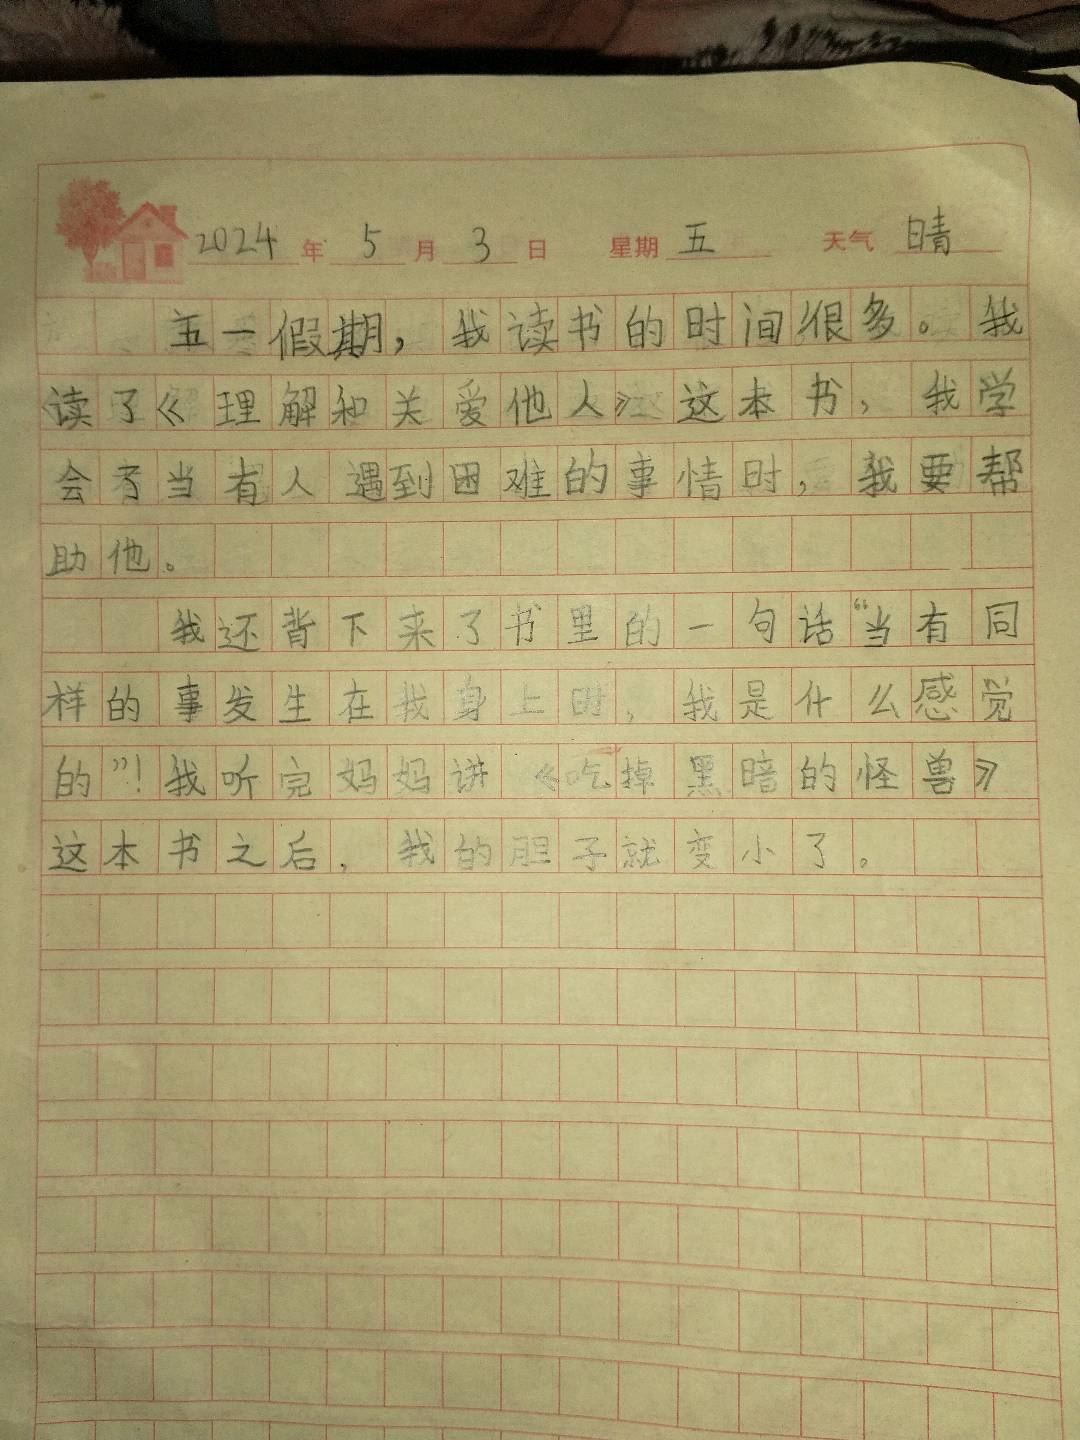 2024年5月3日 星期五 天气晴
五一假期，我读书的时间很多。我
读了《理解和关爱他人》这本书，我学
会了当有人遇到困难的事情时，我要帮
助他。
我还背下来了书里的一句话“当有同
样的事发生在我身上时，我是什么感觉
的”！我听完妈妈讲《吃掉黑暗的怪兽》
这本书之后，我的胆子就变小了。